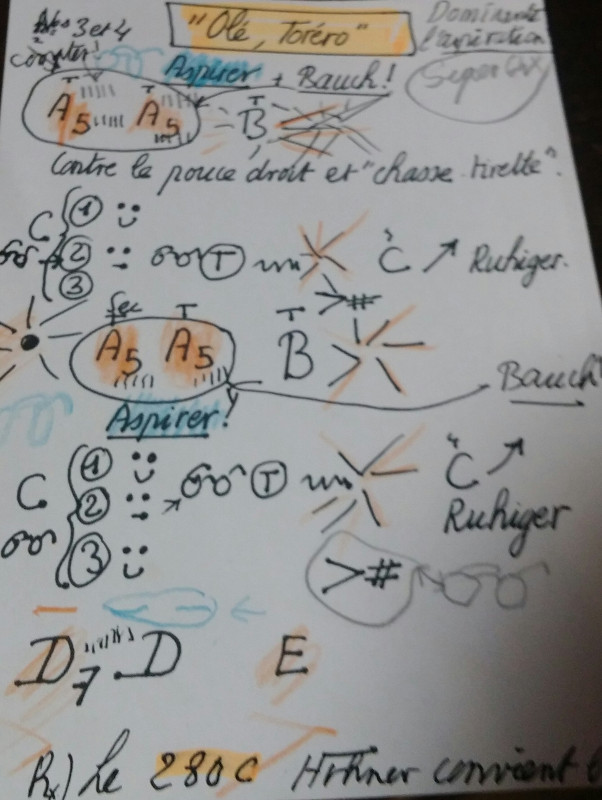 3 et 4 "Olé, Toréro" Dominante
compter! l'aspiration
Aspirer + Bauch! Super
T T T
A5 A5 B
Contre le pouce droit et "chasse-tirette".
C 1 2 3 T C Ruhiger.
> #
Sec T T
A5 A5 B Bauch!
Aspirer!
C 1 2 3 T C
Ruhiger
> #
D7 D E
Rx) Le 280C Hohner convient